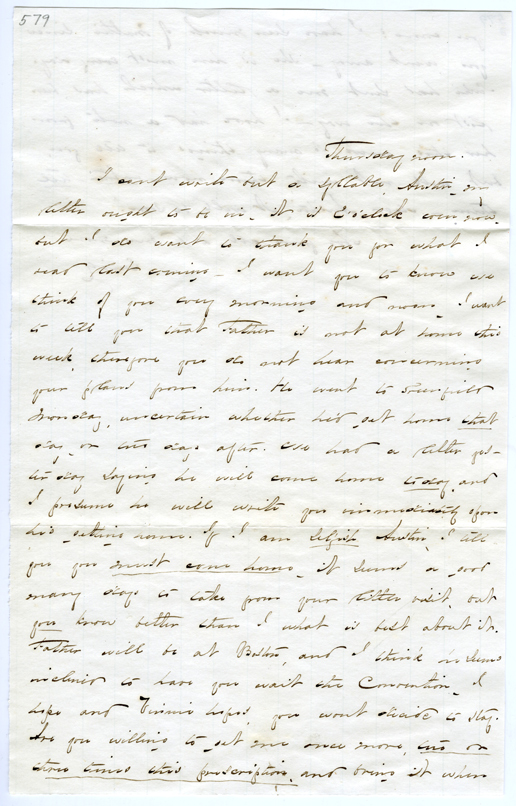 579
Thursday noon.
I cant write but a syllable, Austin, my
letter ought to be in, it is 2 o'clock even now,
but I do want to thank you for what I
read last evening - I want you to know we
think of you every morning and noon, I want
to tell you that Father is not at home this
week, therefore you do not hear concerning
your plans from him. He went to Greenfield
Monday, uncertain whether he'd get home that
day, or two days after. We had a letter yes-
terday saying he will come home today, and
I presume he will write you immediately upon
his getting home. If I am selfish Austin, I tell
you you must come home, it seems a good
many days to take from your little visit, but
you know better than I what is best about it.
Father will be at Boston, and I think seems
inclined to have you wait the Convention. I
hope and Vinnie hopes, you wont decide to stay.
Are you willing to get me once more, two or
three times this prescription, and bring it when